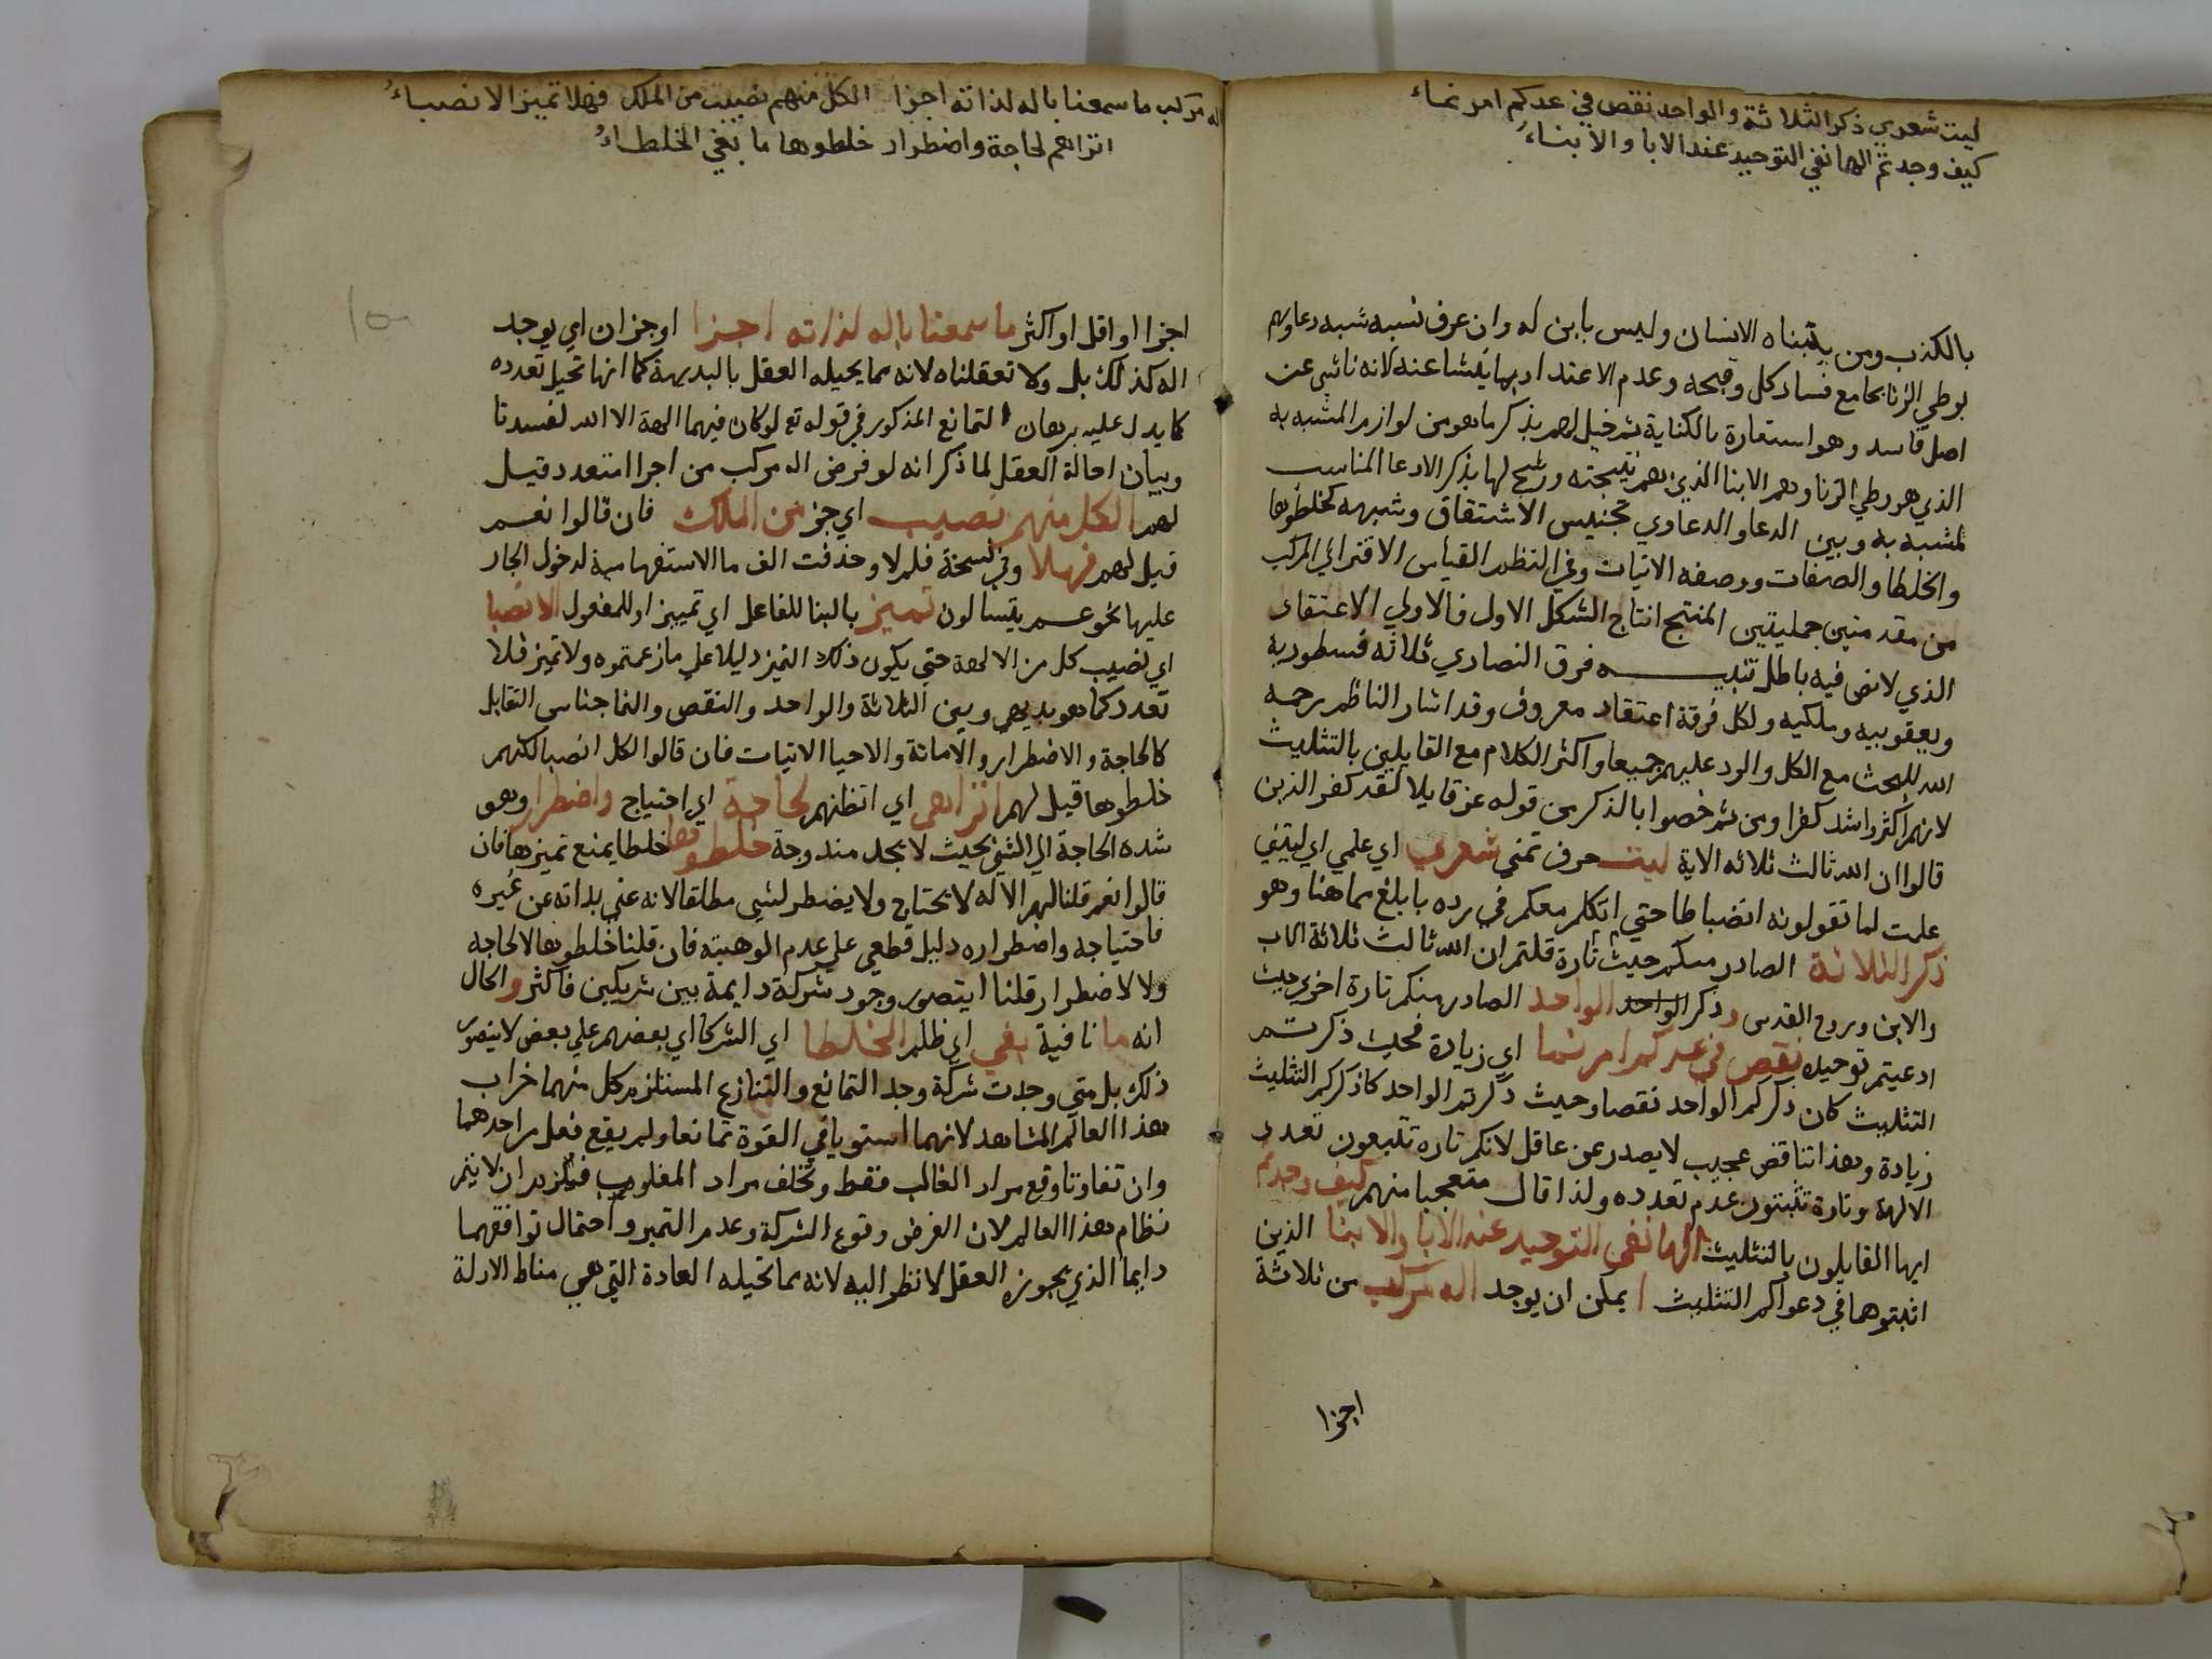 ليت شعري ذكر الثلاثة والواحد نقص في عدكم امر نماء
كيف وجدتم الها نفي التوحيد عند الابا والابناء
بالكذب ومن يتبناه الانسان وليس بابن له وان عرف نسبه شبه دعاويهم
بوطي الزنا بجامع فساد كل وقبحه وعدم الاعتداد بما ينشا عنه لانه ناشي عن
اصل فاسد وهو استعارة بالكناية ثم خيل لهم بذكر ما هو من لوازم المشبه به
الذي هو وطي الزنا وهم الابنا الذين هم نتيجته ورشح لها بذكر الادعا المناسب
لمشبه به وبين الدعا والدعاوي تجنيس الاشتقاق وشبهه كخلطوها
والخلطا والصفات ووصفه الاتيات وفي النظم القياس الاقتراني المركب
من مقدمتين حمليتين المنتج انتاج الشكل الاول فالاولي الاعتقاد
الذي لا نص فيه باطل تنبيه فرق النصاري ثلاثه نسطوريه
ويعقوبيه وملكيه ولكل فرقة اعتقاد معروف وقد اشار الناظم رحمه
الله للبحث مع الكل والرد عليهم جميعا واكثر الكلام مع القايلين بالتثليث
لانهم اكثر واشد كفرا ومن ثم خصوا بالذكر من قوله عز قايلا لقد كفر الذين
قالوا ان الله ثالث ثلاثه الاية ليت حرف تمني شعري اي علمي اي ليتني
علمت لما تقولونه انضباطا حتي اتكلم معكم في رده بابلغ مما هنا وهو
ذكر الثلاثة الصادر منكم حيث تارة قلتم ان الله ثالث ثلاثة الاب
والابن وروح القدس و ذكر الواحد الواحد الصادر منكم تارة اخري حيث
ادعيتم توحيده نقص في عدكم امر نما اي زيادة فحيث ذكرتم
التثليث كان ذكركم الواحد نقصا وحيث ذكرتم الواحد كان ذكركم التثليث
زيادة وهذا تناقض عجيب لا يصدر عن عاقل لانكم تاره تدعون تعدد
الالهة وتارة تثبتون عدم تعدده ولذا قال متعجبا منهم كيف وجدتم
ايها القايلون بالتثليث الها نفي التوحيد عند الابا والابنا الذين
اثبتموها في دعواكم التثليث ا يمكن ان يوجد اله مركب من ثلاثة
اجزا
اله مركب ما سمعنا باله لذاته اجزا الكل منهم نصيب من الملك فهلا تميز الانصباء
اتراهم لحاجة واضطرار خلطوها ما بغي الخلطاء
اجزا او اقل او اكثر ما سمعنا باله لذاته اجزا او جزان اي يوجد
اله كذلك بل ولا تعقلناه لانه مما يحيله العقل بالبديهة كما انها تحيل تعدده
كما يدل عليه برهان التمانع المذكور في قوله تع لو كان فيهما الهة الا الله لفسدتا
وبيان احالة العقل لما ذكر انه لو فرض اله مركب من اجزا متعدد قيل
لهم الكل منهم نصيب اي جز من الملك فان قالوا نعم
قيل لهم فهلا وفي نسخة فلم لا وحذفت الف ما الاستفهامية لدخول الجار
عليها نحو عم يتسالون تميز بالبنا للفاعل اي تمييز او للمفعول الانصبا
اي نصيب كل من الالهة حتي يكون ذلك التميز دليلا علي ما زعمتموه ولا تميز فلا
تعدد كما هو بديهي وبين الثلاثة والواحد والنقص والنما جناس التقابل
كالحاجة والاضطرار والاماتة والاحيا الاتيات فان قالوا لكل انصبا لكنهم
خلطوها قيل لهم اتراهم اي اتظنهم لحاجة اي احتياج واضطرار وهو
شده الحاجة الي الشي بحيث لا يجد مندوحة خلطوها خلطا يمنع تميزها فان
قالوا نعم قلنا لهم الاله لا يحتاج ولا يضطر لشي مطلقا لانه غني بذاته عن غيره
فاحتياجه واضطراره دليل قطعي علي عدم الوهيته فان قلنا خلطوها لا لحاجه
ولا لاضطرار قلنا ايتصور وجود شركة دايمة بين شريكين فاكثر والحال
انه ما نافية بغي اي ظلم الخلطا اي الشركا اي بعضهم علي بعض لا يتصور
ذلك بل متي وجدت شركة وجد التمانع والتنازع المستلزم كل منهما خراب
هذا العالم المشاهد لانهما استويا في القوة تمانعا ولم يقع فعل من احدهما
وان تفاوتا وقع مراد الغالب فقط وتخلف مراد المغلوب فيلزم ان لا يتم
نظام هذا العالم لان الفرض وقوع الشركة وعدم التميز واحتمال توافقهما
دايما الذي يجوزه العقل لا نظر اليه لانه مما تحيله العادة التي هي مناط الادلة